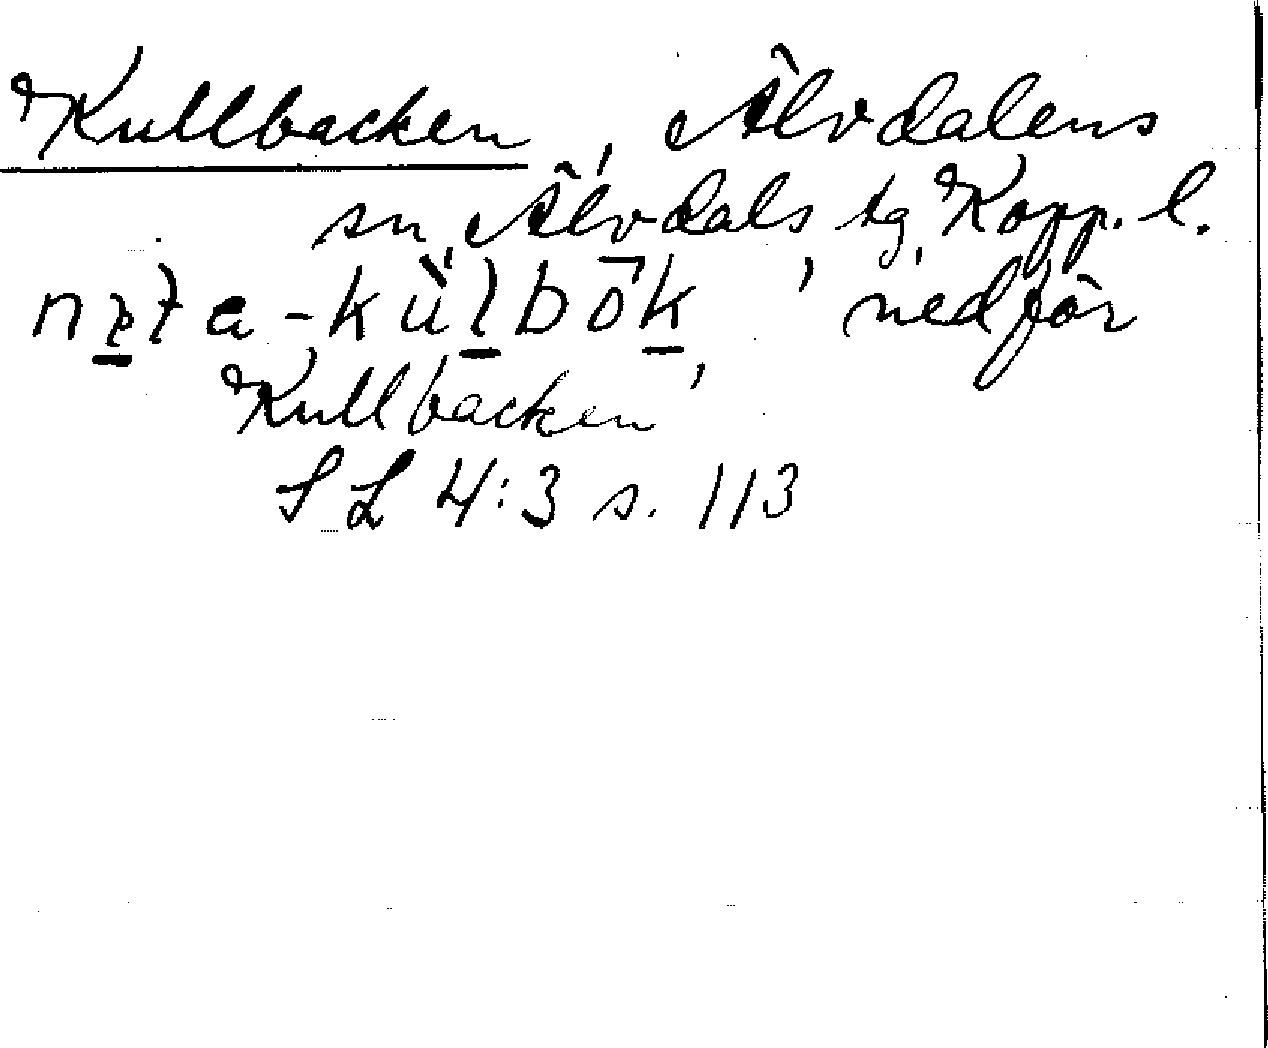 Kullbacken, Älvdalens
sn, Älvdals tg, Kopp. l.
'nedför
Kullbacken'
SL 4:3 s. 113